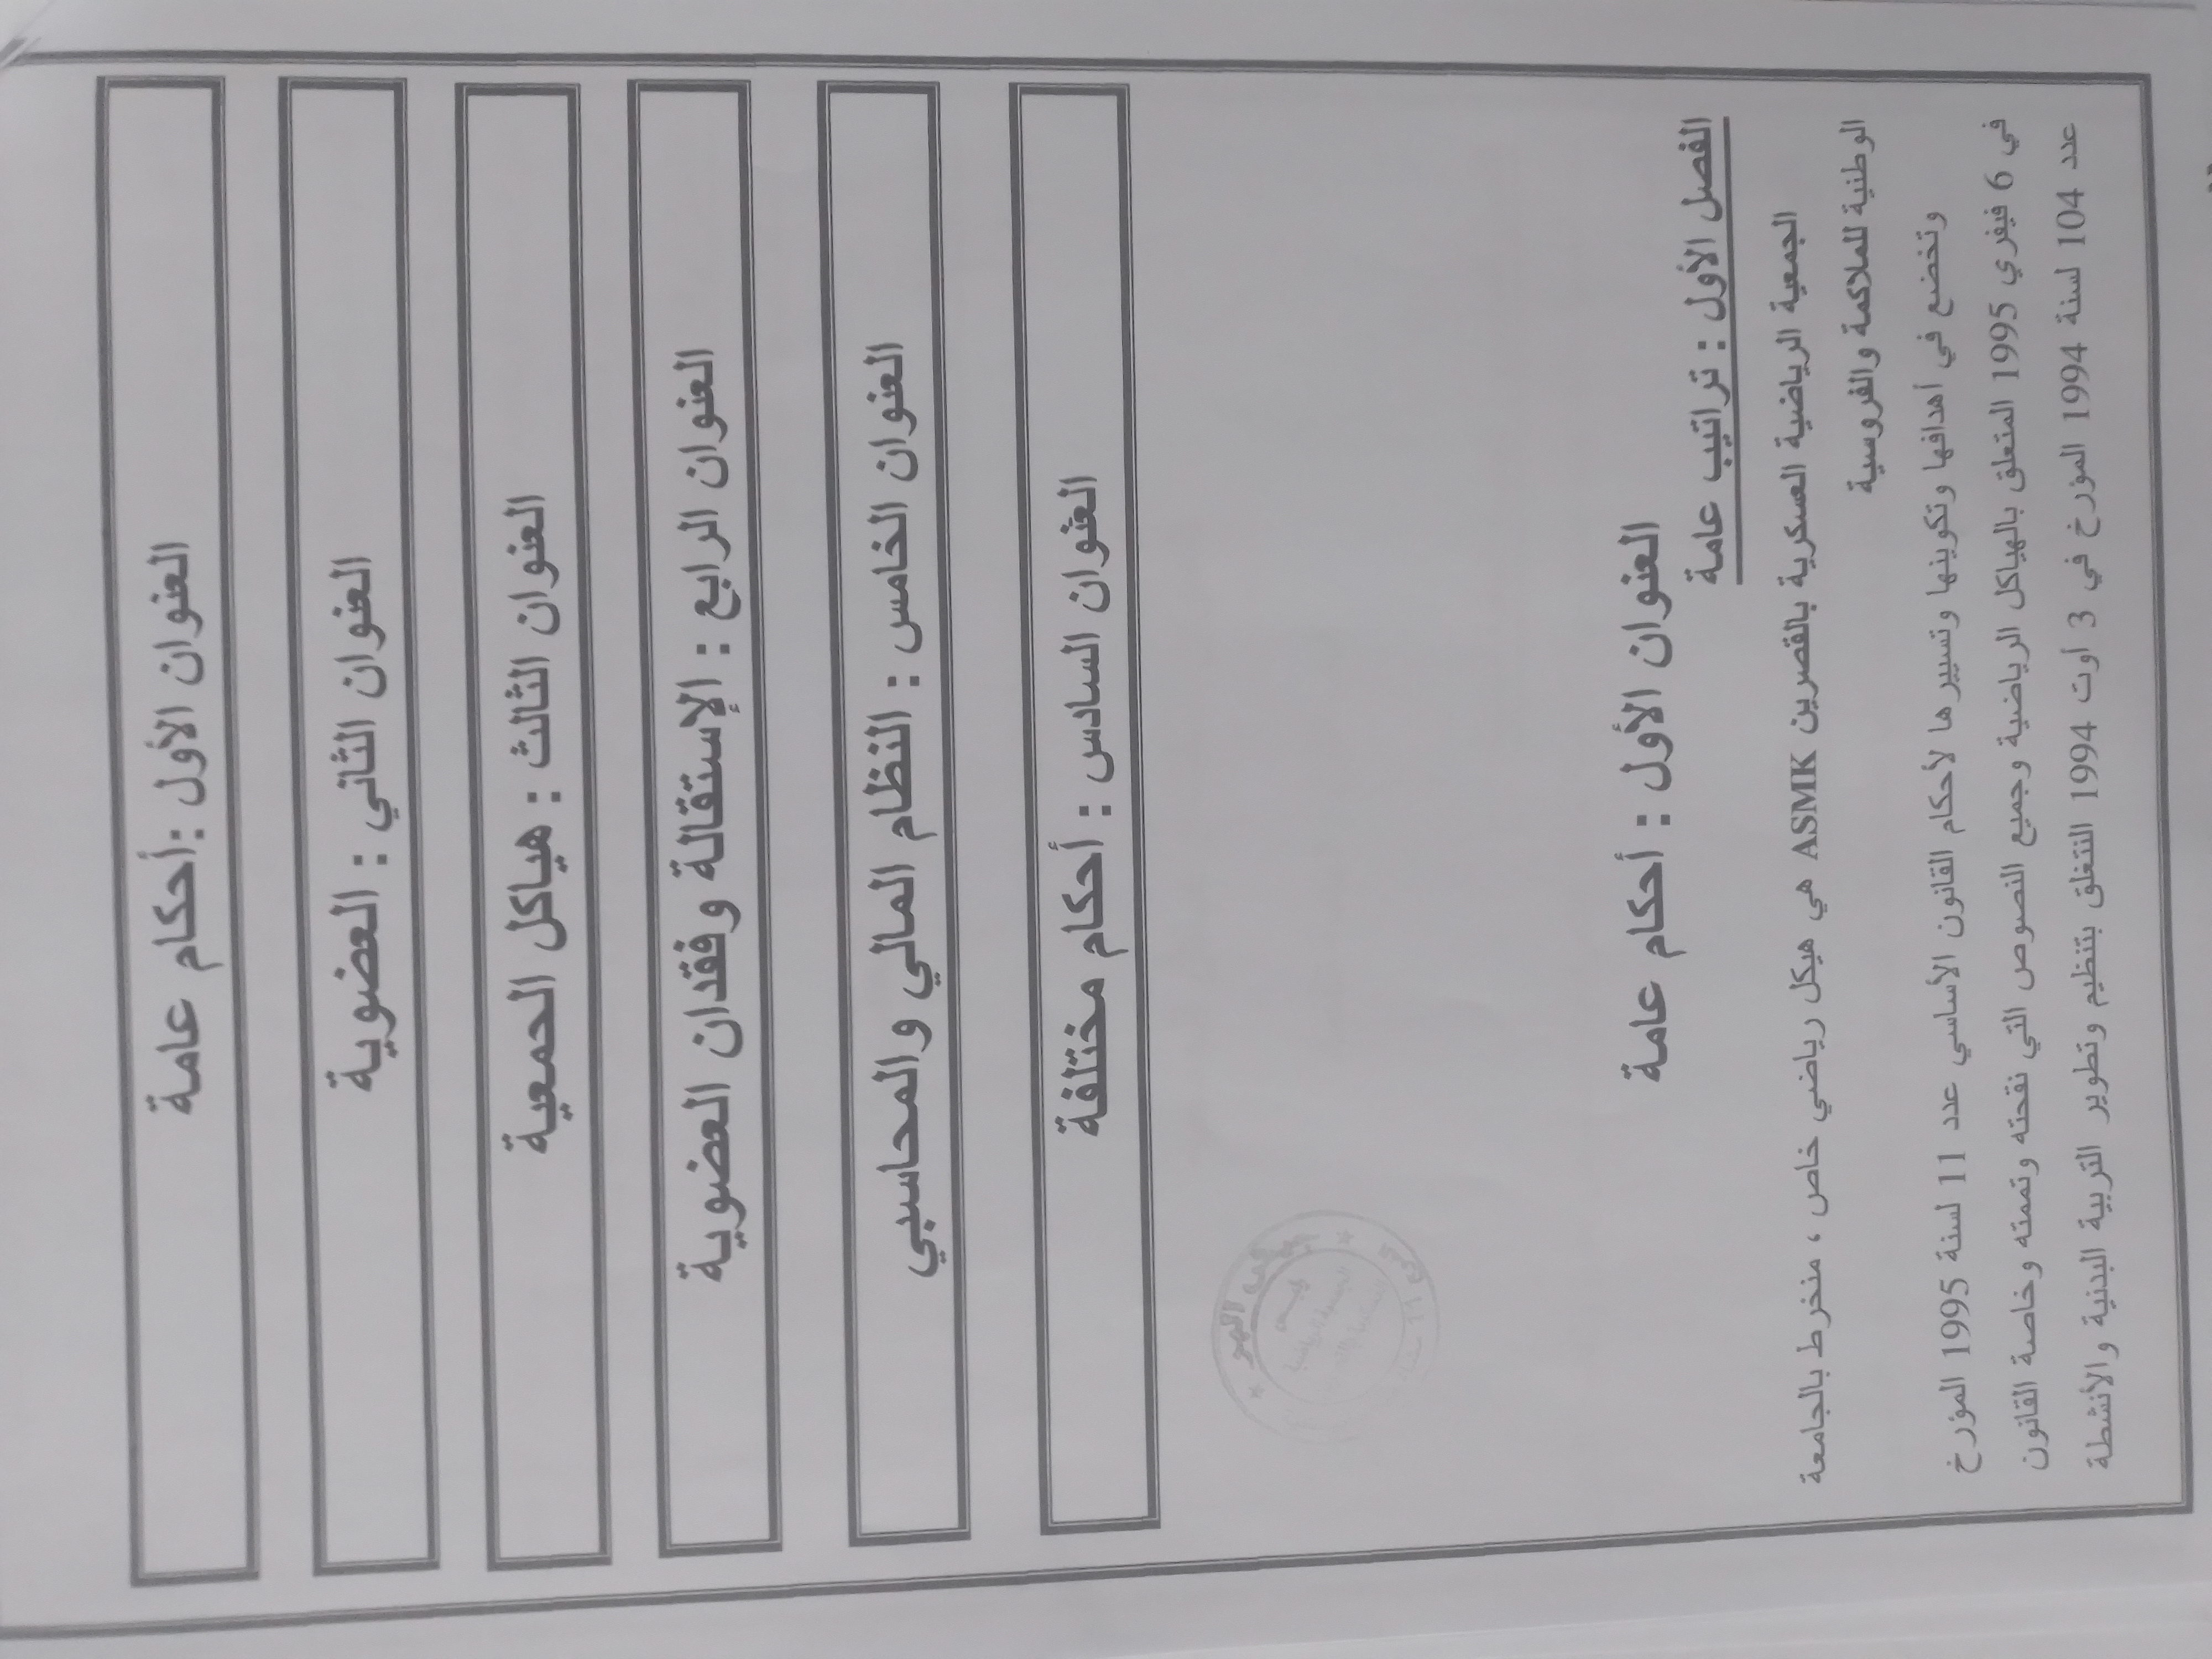 العنوان الأول :أحكام عامة
العنوان الثاني : العضوية
العنوان الثالث : هياكل الحمعية
العنوان الرابع : الإستقالة وفقدان العضوية
العنوان الخامس : النظام المالي والمحاسبي
العنوان السادس : أحكام مختلفة
العنوان الأول : أحكام عامة
الفصل الأول : تراتيب عامة
الجمعية الرياضية العسكرية بالقصرين ASMK هي هيكل رياضي خاص ، منخرط بالجامعة
الوطنية للملاكمة والفروسية
وتخضع في أهدافها وتكوينها وتسييرها لأحكام القانون الأساسي عدد 11 لسنة 1995 المؤرخ
في 6 فيفري 1995 المتعلق بالهياكل الرياضية وجميع النصوص التي نقحته وتممته وخاصة القانون
عدد 104 لسنة 1994 المؤرخ في 3 أوت 1994 التتغلق بتنظيم وتطوير التربية البدنية والأنشطة